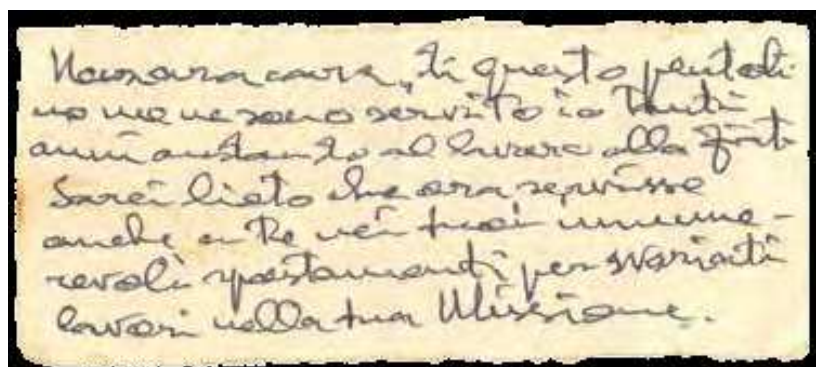 cara, di questo pentoli-
no me ne sono servito io tanti
anni andando al lavoro alla
Sarei lieto che ora servisse
anche a te nei tuoi innume-
revoli spostamenti per svariati
lavori nella tua Missione.